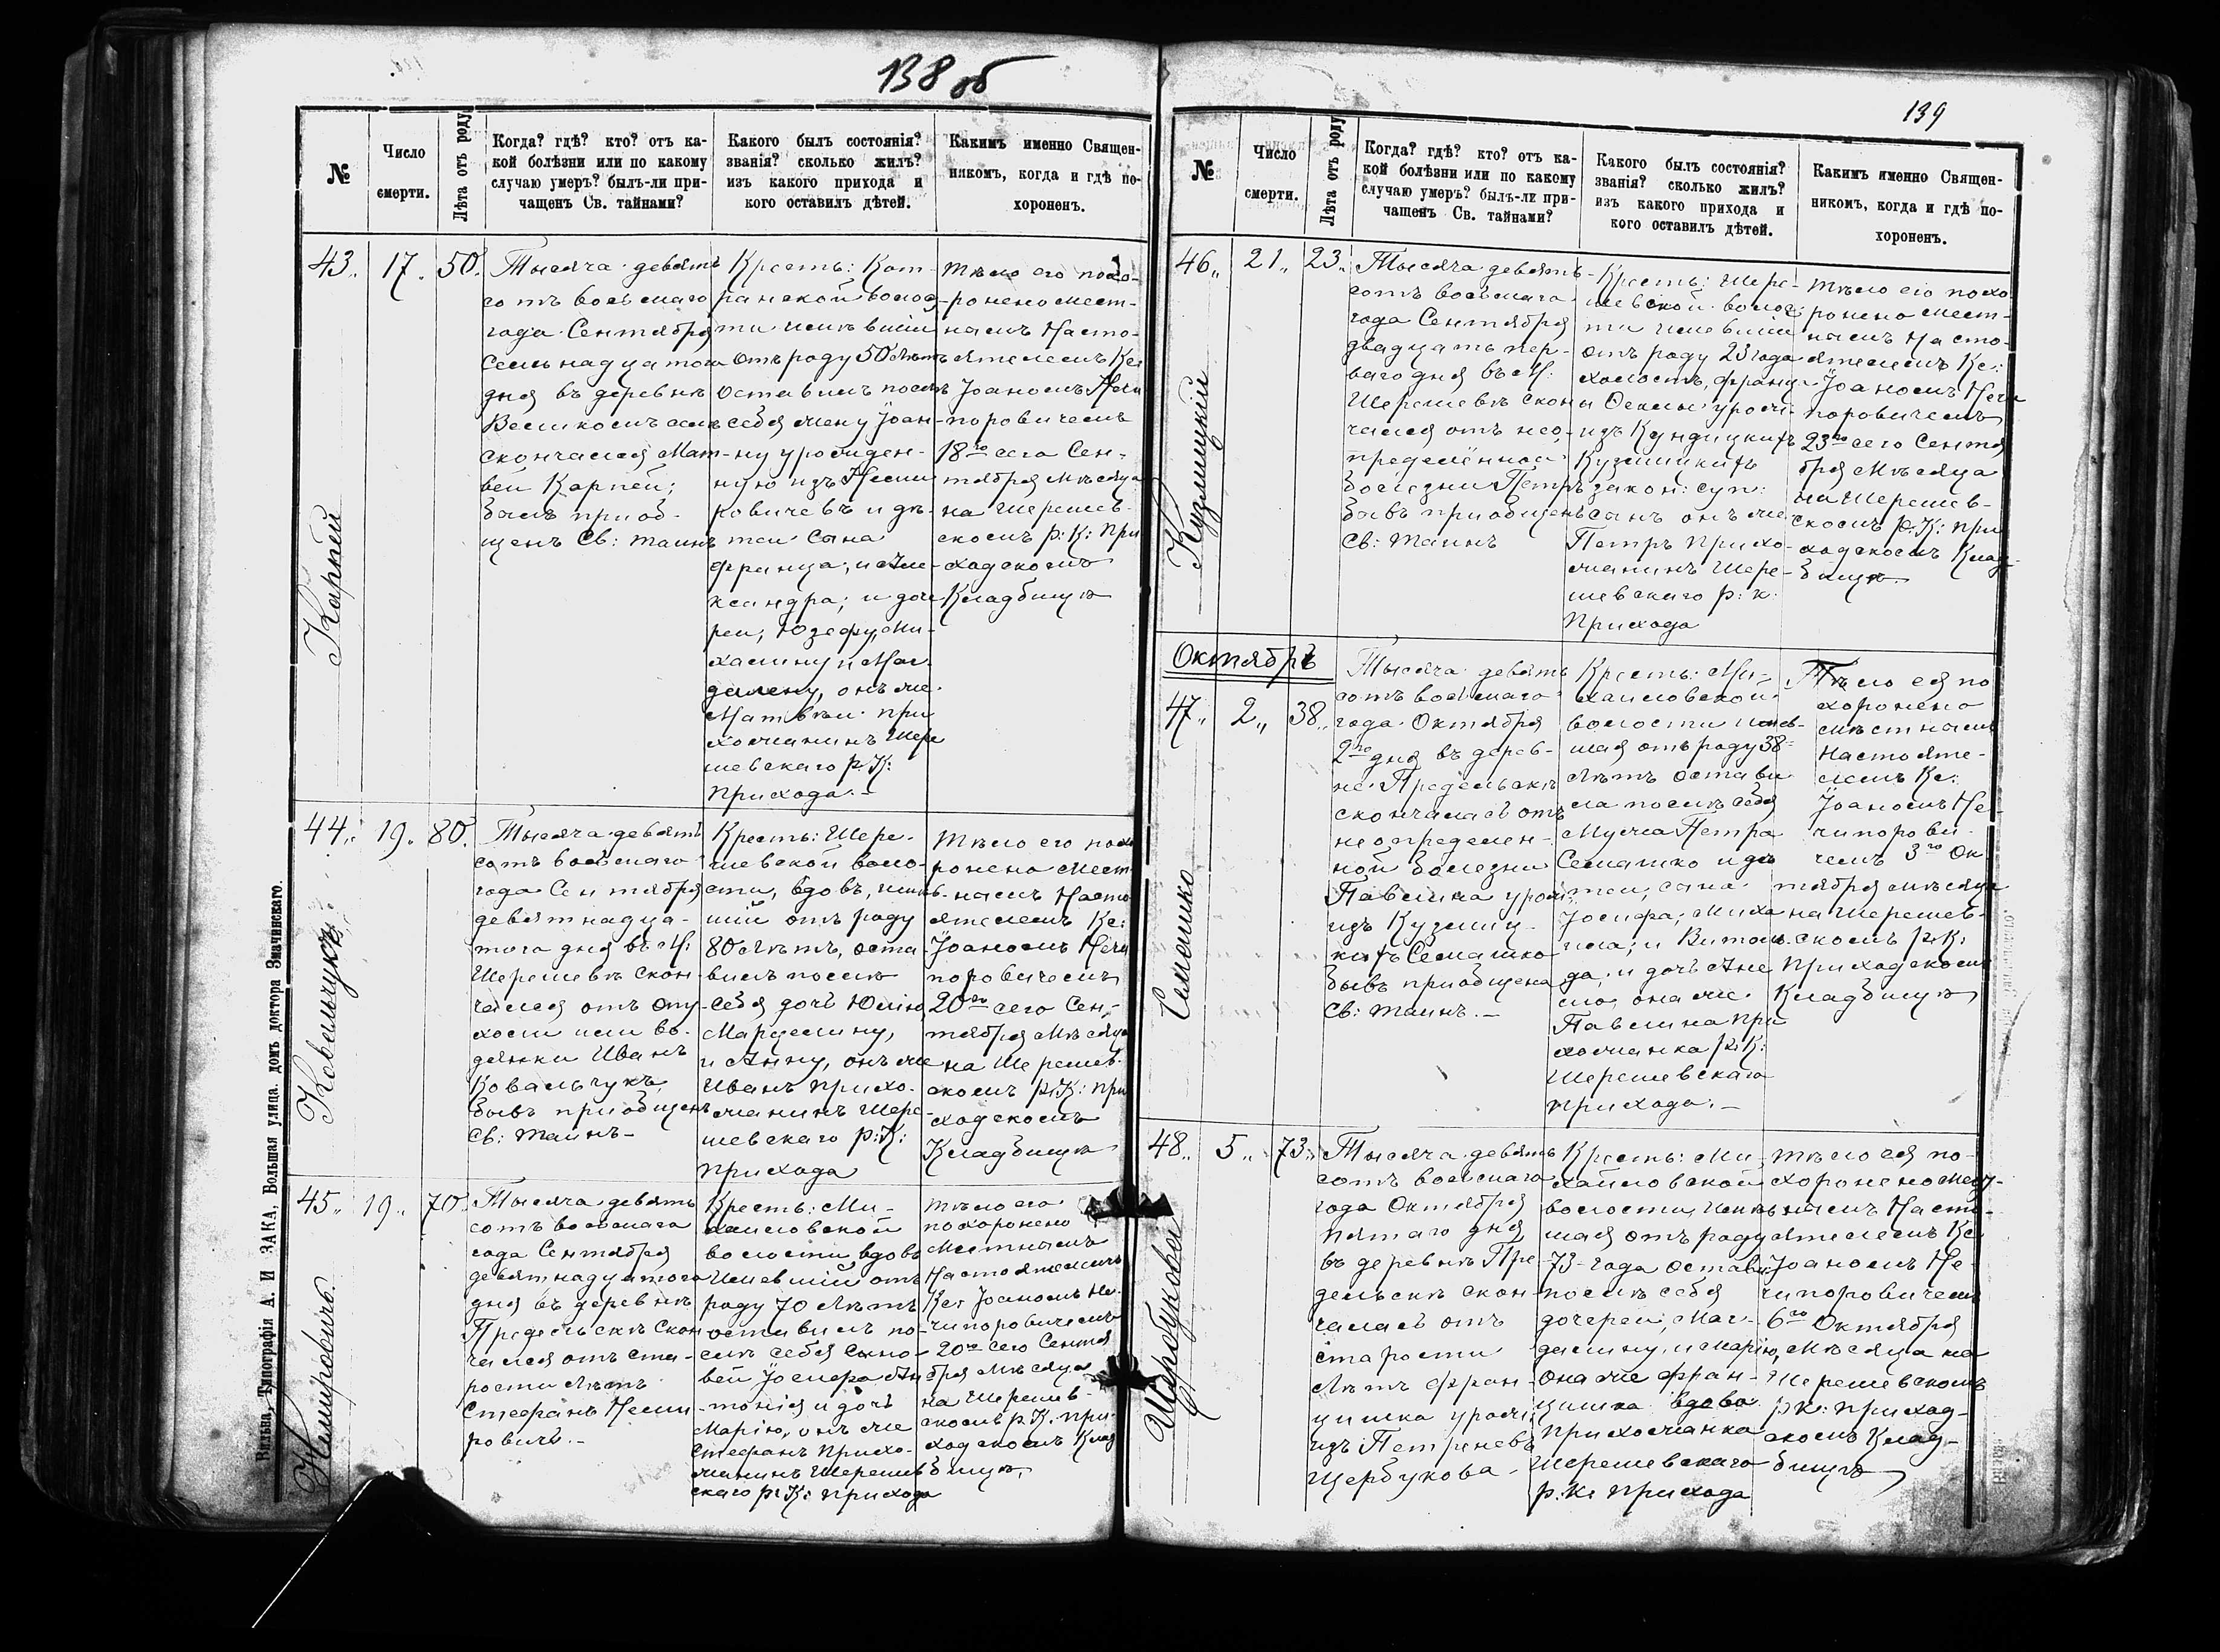 138 об
№
Число
смерти.
Лѣта отъ роду
Когда? гдѣ? кто? отъ ка-
кой болѣзни или по какому
случаю умеръ? былъ-ли при-
чащенъ Св. тайнами?
Какого былъ состоянія?
званія? сколько жилъ?
изъ какого прихода и
кого оставилъ дѣтей.
Какимъ именно Священ-
никомъ, когда и гдѣ по-
хороненъ.
43.. 17. 50.
Карпей
Тысяча девять
сотъ восьмаго
года Сентября
семьнадцатого
дня въ деревнѣ
Великомъ селѣ
скончался Мат-
вей Карпей;
былъ приоб-
щенъ Св: таинъ
Крестъ: Кот-
ранской волос-
ти имѣвшій
отъ роду 50 лѣтъ
оставилъ послѣ
себя жену Іоан-
ну урожден-
ную изъ Неми
ровичевъ и дѣ-
теи сына
Франца, и Але-
ксандра; и доче
реи; Юзефу, Ми-
халину и Маг-
далену, онъ же
Матвѣи при
хожанинъ Шере
шевскаго р.К:
прихода.-
Тѣло его похо-
ронено мест-
нымъ Насто-
ятелемъ Кс:
Іоаномъ Нечи
поровичемъ
18го сего Сен-
тября мѣсяца
на Шерешев-
скомъ р: К: При
ходскомъ
Кладбищѣ
44.. 19. 80.
Ковальчукъ
Тысяча девять
сотъ восьмаго
года Сентября
девятнадца-
того дня въ М:
Шерешевѣ скон
чался отъ опу
холи или во-
дянки Иванъ
Ковальчукъ,
бывъ приобщенъ
Св: таинъ-
Крестъ: Шере-
шевской воло-
сти, вдовъ, имѣв-
шій отъ роду
80 лѣтъ, оста-
вилъ послѣ
себя дочь Юлію,
Марцелину,
и Анну, онъ же
Иванъ прихо-
жанинъ Шере-
шевскаго р:К:
прихода
Тѣло его похо
ронено мест
нымъ Насто
ятелемъ Кс:
Іоаномъ Нечи
поровичемъ
20го сего Сен-
тября мѣсяца
на Шерешев-
скомъ р.К: при
ходскомъ
Кладбищѣ
45.. 19.. 70.
Немировичъ.
Тысяча девять
сотъ восьмаго
года Сентября
девятнадцатого
дня въ деревнѣ
Предельскѣ скон
чался отъ ста-
рости лѣтъ
Стефанъ Неми
ровичъ.-
Крестъ: Ми-
хайловской
волости вдовъ
имевшій отъ
роду 70 лѣтъ
оставилъ по-
слѣ себя сыно-
вей Іосифа Ан
тонія и дочь
Марію, онъ же
Стефанъ прихо-
жанинъ Шерешев
скаго р: К: прихода
Тѣло его
похоронено
местнымъ
Настоятелемъ
Кс: Іоаномъ Не-
чипоровичемъ
20го сего Сентя
бря мѣсяца
на Шерешев-
скомъ р. К. при-
ходскомъ Клад
бищѣ.
Вильна, Типографія А. И ЗАКА, Большая улица. домъ доктора Змачинскаго.
139
№
Число
смерти.
Лѣта отъ роду
Когда? гдѣ? кто? отъ ка-
кой болѣзни или по какому
случаю умеръ? былъ-ли при-
чащенъ Св. тайнами?
Какого былъ состоянія?
званія? сколько жилъ?
изъ какого прихода и
кого оставилъ дѣтей.
Какимъ именно Священ-
никомъ, когда и гдѣ по-
хороненъ.
46.. 21.. 23..
Кузмицкій
Тысяча девять-
сотъ восьмаго
года Сентября
двадцать пер-
ваго дня въ М:
Шерешевѣ скон
чался отъ нео-
пределённой
болезни Петръ
бывъ приобщенъ
Св: таинъ
Крестъ: Шере-
шевской волос
ти имевшій
отъ роду 23 года
холостъ, Франц
и урож:
изъ Кундицкихъ
Кузмицкихъ
закон: суп:
сынъ онъ же
Петръ прихо-
жанинъ Шере-
шевскаго р: к:
прихода
Тѣло его похо
ронено мест-
нымъ Насто-
ятелемъ Кс:
Іоаномъ Нечи
поровичемъ
23го сего Сентя
бря мѣсяца
на Шерешев-
скомъ р.К: при
ходскомъ Клад-
бищѣ.
Октябрь
47.. 2.. 38..
Семашко
Тысяча девять
сотъ восьмаго
года Октября
2го дня въ дерев-
не Предельскѣ
скончалась отъ
неопределен-
ной болезни
Павлина урож:
изъ Кузмиц-
кихъ Семашко
бывъ приобщена
Св: таинъ.-
Крестъ: Ми-
хайловской
волости имев-
шая отъ роду 38
лѣтъ остави
ла послѣ себя
мужа Петра
Семашко и дѣ
теи; сына
Іосифа; Миха
ила; и Витоль
да; и дочь Але
ю, она же
Павлина при
хожанка р.К:
Шерешевскаго
прихода.-
Тѣло ея по
хоронено
мѣстнымъ
Настояте-
лемъ Кс:
Іоаномъ Не-
чипорови-
чемъ 3го Ок-
тября мѣсяца
на Шерешев-
скомъ р.К:
приходскомъ
Кладбищѣ
48.. 5.. 73..
Щербукова
Тысяча девять
сотъ восьмаго
года Октября
пятаго дня,
въ деревнѣ Пре
дельскѣ скон-
чалась отъ
старости
лѣтъ Фран-
цишка урож:
изъ Петреневъ
Щербукова.
Крестъ: Ми-
хайловской
волости, имѣв
шая отъ роду
73-года остави
послѣ себя
дочерей, Маг-
далину, и Марію,
она же Фран-
цишка вдова
прихожанка
Шерешевскаго
р. к. прихода
Тѣло ея по-
хоронено мест-
нымъ Насто-
ятелемъ Кс
Іоаномъ Не-
чипоровичемъ
6го Октября
мѣсяца на
Шерешевскомъ
рк: приход-
скомъ Клад-
бищѣ